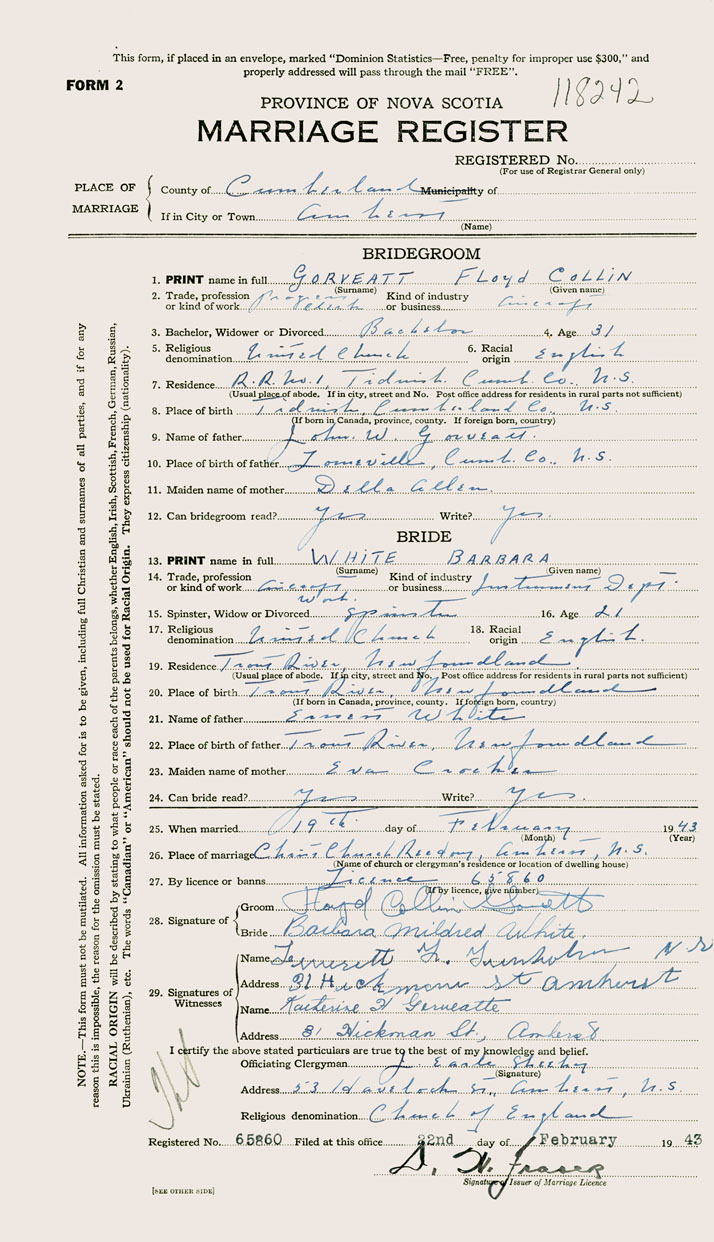 This form, if placed in an envelope, marked "Dominion Statistics—Free, penalty for improper use $300," and
properly addressed will pass through the mail "FREE".
FORM 2
118242
PROVINCE OF NOVA SCOTIA
MARRIAGE REGISTER
REGISTERED No.
(For use of Registrar General only)
PLACE OF MARRIAGE
County of Cumberland Municipality of
If in City or Town Amherst
(Name)
BRIDEGROOM
1. PRINT name in full GORVEATT FLOYD COLLIN
(Surname) (Given name)
2. Trade, profession or kind of work Progress Clerk Kind of industry or business Aircraft
3. Bachelor, Widower or Divorced Bachelor 4. Age 31
5. Religious denomination United Church 6. Racial origin English
7. Residence R.R. No. 1, Tidnish Cumb. Co., N.S.
(Usual place of abode. If in city, street and No. Post office address for residents in rural parts not sufficient)
8. Place of birth Tidnish, Cumberland Co., N.S.
(If born in Canada, province, county. If foreign born, country)
9. Name of father John. W. Gorveatt.
10. Place of birth of father Lorneville, Cumb. Co., N.S.
11. Maiden name of mother Della Allen.
12. Can bridegroom read? Yes Write? Yes.
BRIDE
13. PRINT name in full WHITE BARBARA
(Surname) (Given name)
14. Trade, profession or kind of work Aircraft Work. Kind of industry or business Instrument Dept.
15. Spinster, Widow or Divorced Spinster 16. Age 21
17. Religious denomination United Church 18. Racial origin English.
19. Residence Trout River, Newfoundland.
(Usual place of abode. If in city, street and No. Post office address for residents in rural parts not sufficient)
20. Place of birth Trout River, Newfoundland
(If born in Canada, province, county. If foreign born, country)
21. Name of father Ernest White
22. Place of birth of father Trout River, Newfoundland
23. Maiden name of mother Eva Crocker
24. Can bride read? Yes Write? Yes.
25. When married 19th day of February 1943
(Month) (Year)
26. Place of marriage Christ Church Rectory, Amherst, N.S.
(Name of church or clergyman's residence or location of dwelling house)
27. By licence or banns Licence 65860
(If by licence, give number)
28. Signature of Groom Floyd Collin Gorveatt
Bride Barbara Mildred White.
29. Signatures of Witnesses
Name Trenholm N S
Address 31 Hickmon St Amherst
Name Katherine Gorveatte
Address 81 Hickman St., Amherst
I certify the above stated particulars are true to the best of my knowledge and belief.
Officiating Clergyman J Earle
(Signature)
Address 53 Havelock St., Amherst, N.S.
Religious denomination Church of England
Registered No. 65860 Filed at this office 22nd day of February 1943
D. W. Fraser
Signature of Issuer of Marriage Licence
[SEE OTHER SIDE]
NOTE.—This form must not be mutilated. All information asked for is to be given, including full Christian and surnames of all parties, and if for any
reason this is impossible, the reason for the omission must be stated.
RACIAL ORIGIN will be described by stating to what people or race each of the parents belongs, whether English, Irish, Scottish, French, German, Russian,
Ukrainian (Ruthenian), etc. The words "Canadian" or "American" should not be used for Racial Origin. They express citizenship (nationality).